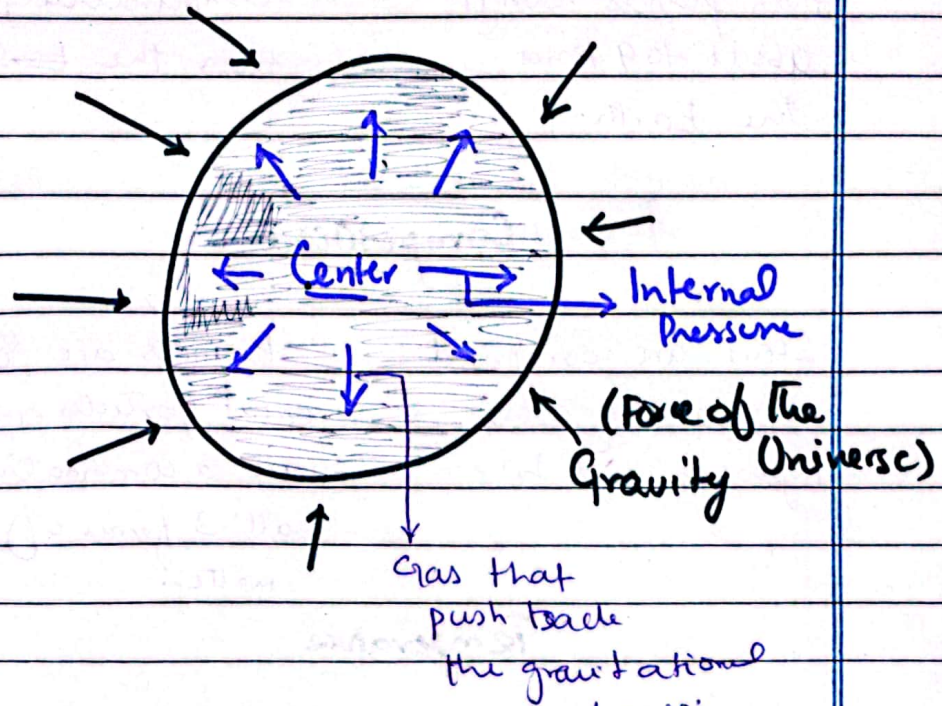 Center
Internal
Pressure
(Force of The
Universe)
Gravity
Gas that
push back
the gravitational